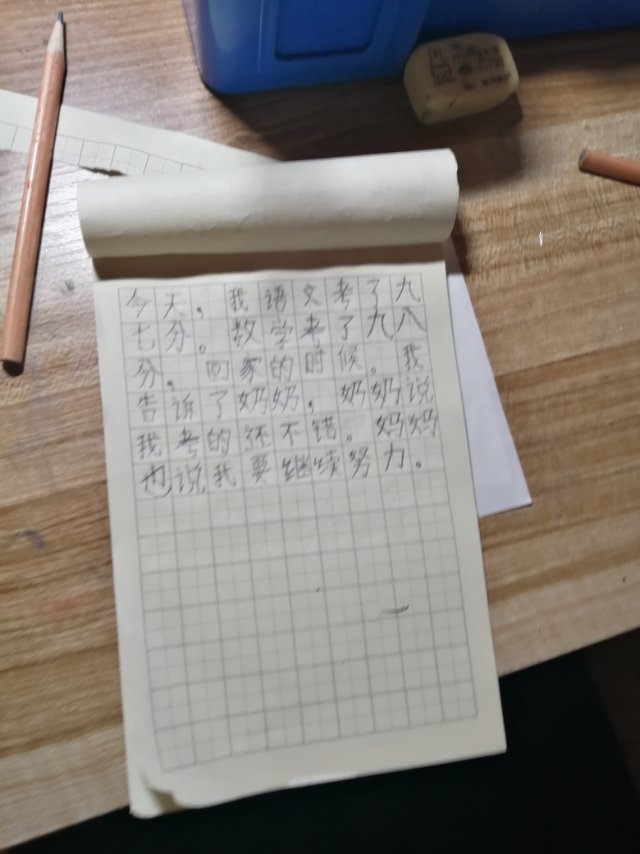 今天，我语文考了九
七分。数学考了九八
分。回家的时候。我
告诉了奶奶，奶奶说
我考的还不错。妈妈
也说我要继续努力。